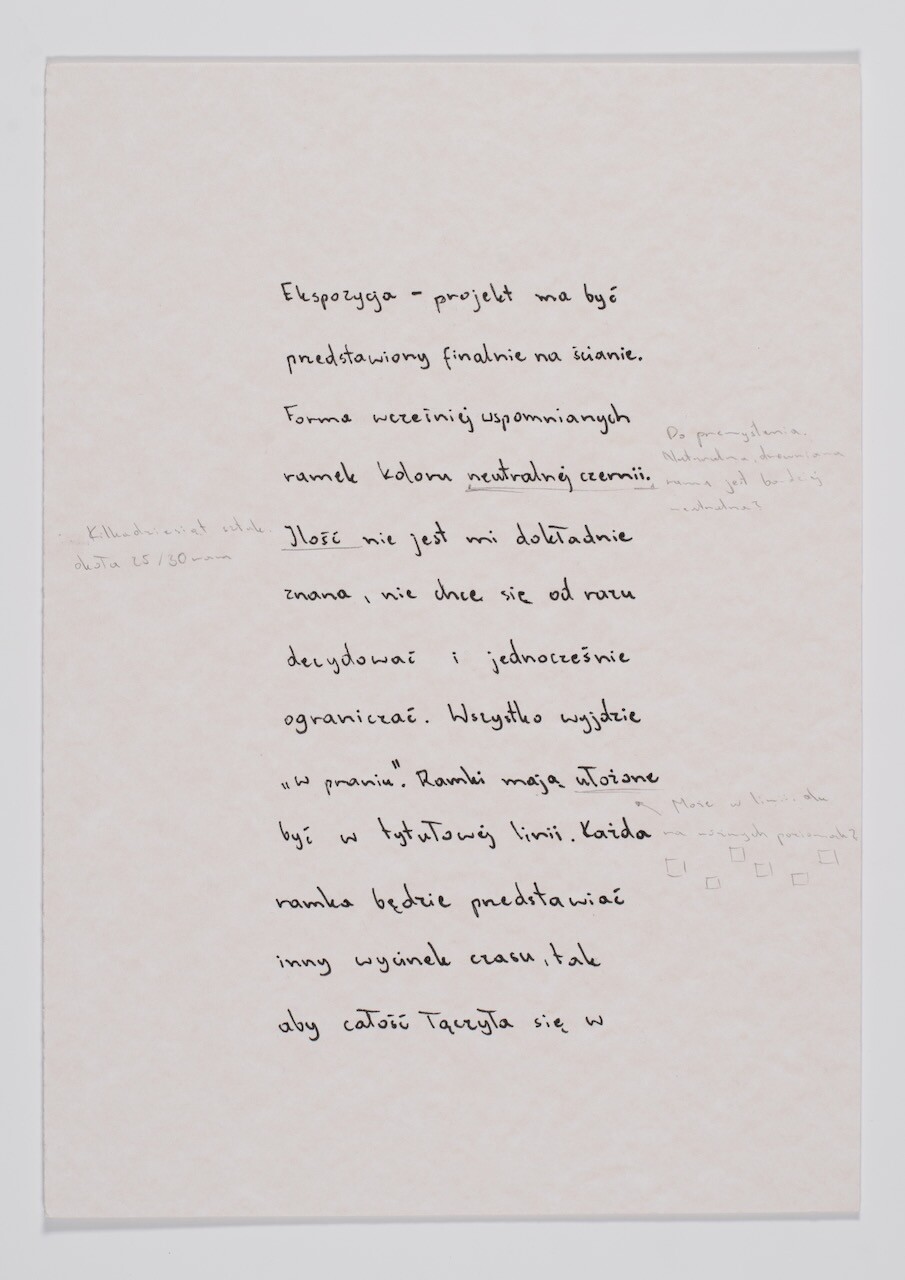 Ekspozycja - projekt ma być
przedstawiony finalnie na ścianie.
Forma wcześniej wspomnianych
ramek koloru neutralnej czernii.
Do przemyślenia.
Naturalna, drewniana
rama jest bardziej
neutralna?
Ilość nie jest mi dokładnie
... Kilkadziesiąt sztuk
około 25/30 ram
znana, nie chcę się od razu
decydować i jednocześnie
ograniczać. Wszystko wyjdzie
„w praniu". Ramki mają ułożone
być w tytułowej linii. Każda
Może w linii, ale
na różnych poziomach?
ramka będzie przedstawiać
inny wycinek czasu, tak
aby całość łączyła się w